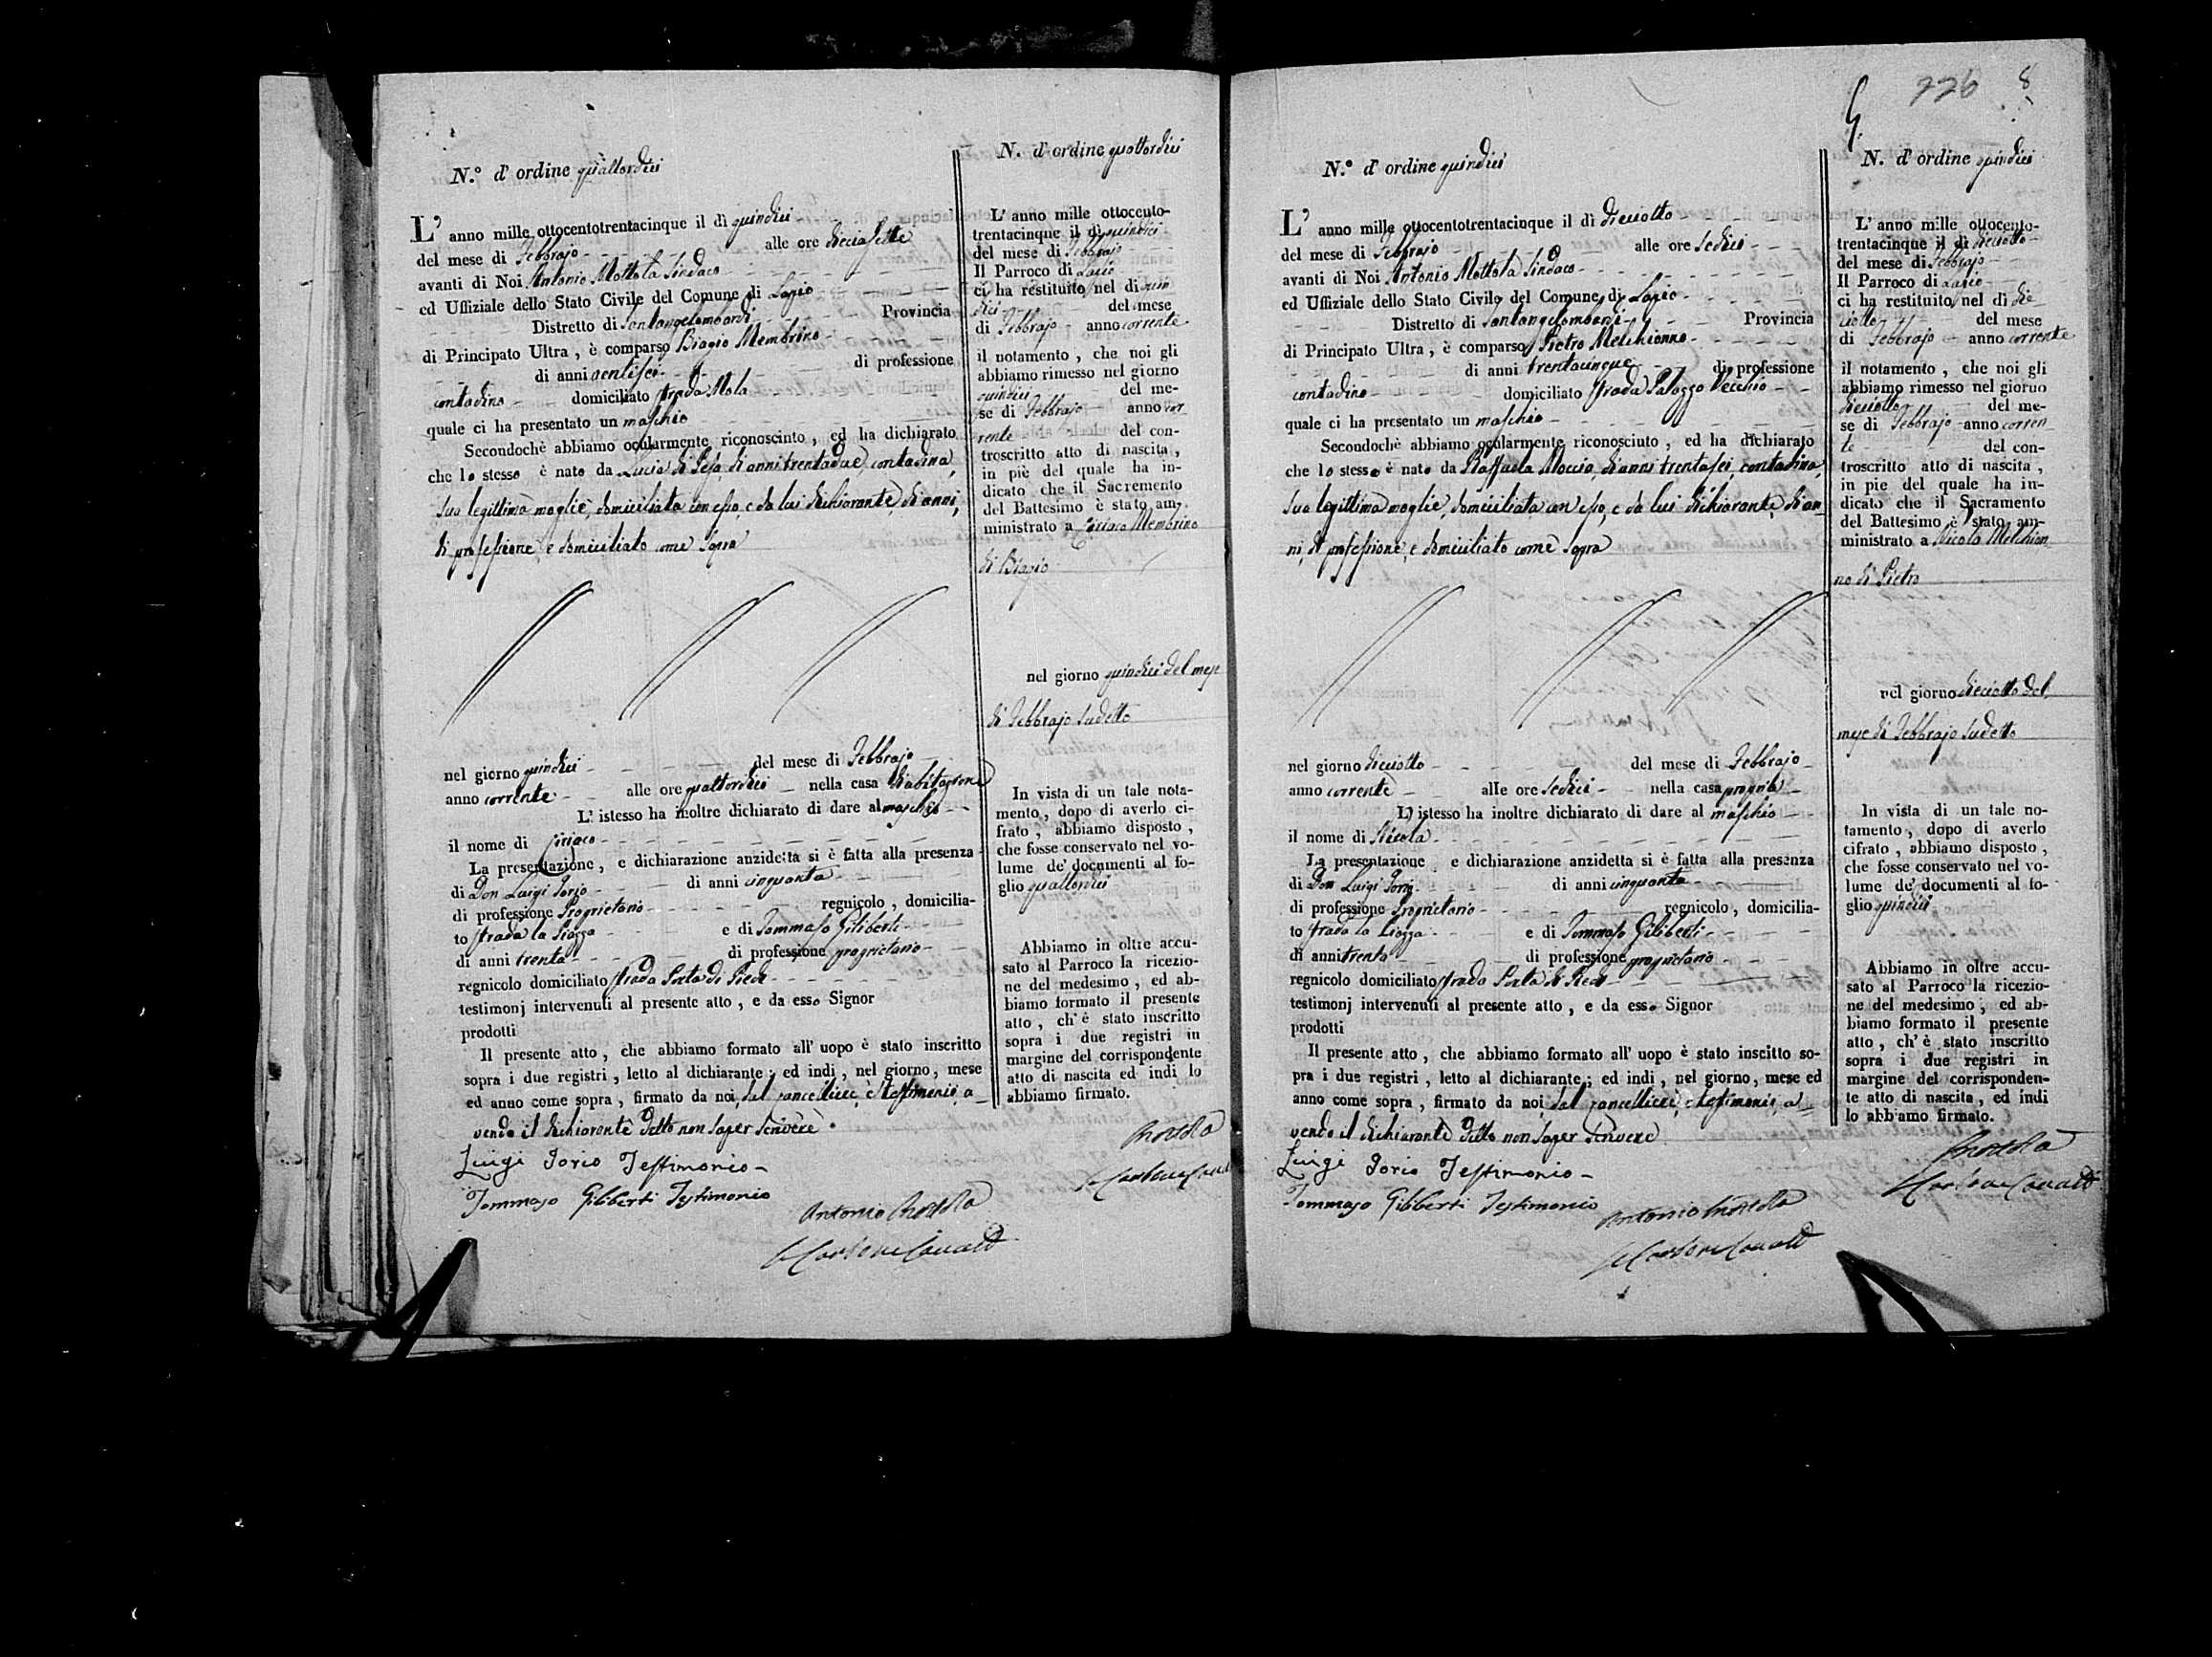 N.º d' ordine quattordici
L' anno mille ottocentotrentacinque il dì quindici
del mese di Febbrajo alle ore diciasette
avanti di Noi Antonio Mottola Sindaco
ed Uffiziale dello Stato Civile del Comune di Lapio
Distretto di Santangelombardi Provincia
di Principato Ultra, è comparso Biagio Membrino
di anni ventisei di professione
contadino domiciliato strada Mola
quale ci ha presentato un maschio
Secondochè abbiamo ocularmente riconosciuto, ed ha dichiarato
che lo stesso è nato da Lucia di anni trentadue, contadina,
sua legittima moglie, domiciliata con esso, e da lui dichiarante, di anni,
di professione, e domiciliato come sopra
nel giorno quindici del mese di Febbrajo
anno corrente alle ore quattordici nella casa di abitazione
L' istesso ha inoltre dichiarato di dare al maschio
il nome di Ciriaco
La presentazione, e dichiarazione anzidetta si è fatta alla presenza
di Don Luigi Iorio di anni cinquanta
di professione Proprietario regnicolo, domicilia-
to strada la Piazza e di Tommaso Giliberti
di anni trenta di professione proprietario
regnicolo domiciliato strada Porta di Piedi
testimonj intervenuti al presente atto, e da esso Signor
prodotti
Il presente atto, che abbiamo formato all' uopo è stato inscritto
sopra i due registri, letto al dichiarante; ed indi, nel giorno, mese
ed anno come sopra, firmato da noi, dal cancelliere, e testimonio, a-
vendo il dichiarante detto non saper scrivere.
Luigi Iorio Testimonio
Tommaso Giliberti Testimonio
Antonio Mottola
N. d' ordine quattordici
L' anno mille ottocento-
trentacinque il dì quindici
del mese di Febbrajo
Il Parroco di Lapio
ci ha restituito nel dì quin
dici del mese
di Febbrajo anno corrente
il notamento, che noi gli
abbiamo rimesso nel giorno
quindici del me-
se di Febbrajo anno cor
rente del con-
troscritto atto di nascita,
in piè del quale ha in-
dicato che il Sacremento
del Battesimo è stato am-
ministrato a Ciriaco Membrino
di Biagio
nel giorno quindici del mese
di Febbrajo sudetto
In vista di un tale nota-
mento, dopo di averlo ci-
frato, abbiamo disposto,
che fosse conservato nel vo-
lume de' documenti al fo-
glio quattordici
Abbiamo in oltre accu-
sato al Parroco la ricezio-
ne del medesimo, ed ab-
biamo formato il presente
atto, ch' è stato inscritto
sopra i due registri in
margine del corrispondente
atto di nascita ed indi lo
abbiamo firmato.
Mottola
226 8
N.º d' ordine quindici
L' anno mille ottocentotrentacinque il dì dieciotto
del mese di Febbrajo alle ore sedici
avanti di Noi Antonio Mottola Sindaco
ed Uffiziale dello Stato Civile del Comune di Lapio
Distretto di Santangelombardi Provincia
di Principato Ultra, è comparso Pietro Melchionno
di anni trentacinque di professione
contadino domiciliato strada Palazzo Vecchio
quale ci ha presentato un maschio
Secondochè abbiamo ocularmente riconosciuto, ed ha dichiarato
che lo stesso è nato da Raffaela Moccia, di anni trentasei, contadina,
sua legittima moglie, domiciliata con esso, e da lui dichiarante, di an-
ni, di professione, e domiciliato come sopra
nel giorno dieciotto del mese di Febbrajo
anno corrente alle ore sedici nella casa propria
L' istesso ha inoltre dichiarato di dare al maschio
il nome di Nicola
La presentazione e dichiarazione anzidetta si è fatta alla presenza
di Don Luigi Iorio di anni cinquanta
di professione Proprietario regnicolo, domicilia-
to strada la Piazza e di Tommaso Giliberti
di anni trenta di professione proprietario
regnicolo domiciliato strada Porta di Piedi
testimonj intervenuti al presente atto, e da esso Signor
prodotti
Il presente atto, che abbiamo formato all' uopo è stato inscitto so-
pra i due registri, letto al dichiarante; ed indi, nel giorno, mese ed
anno come sopra, firmato da noi, dal cancelliere, e testimonio, a-
vendo il dichiarante detto non saper scrivere
Luigi Iorio Testimonio
Tommaso Giliberti Testimonio
Antonio Mottola
N. d' ordine quindici
L' anno mille ottocento-
trentacinque il dì dieciotto
del mese di Febbrajo
Il Parroco di Lapio
ci ha restituito nel dì die
ciotto del mese
di Febbrajo anno corrente
il notamento, che noi gli
abbiamo rimesso nel giorno
dieciotto del me-
se di Febbrajo anno corren
te del con-
troscritto atto di nascita,
in pie del quale ha in-
dicato che il Sacramento
del Battesimo è stato am-
ministrato a Nicola Melchion
no di Pietro
nel giorno dieciotto del
mese di Febbrajo sudetto
In vista di un tale no-
tamento, dopo di averlo
cifrato, abbiamo disposto,
che fosse conservato nel vo-
lume de' documenti al fo-
glio quindici
Abbiamo in oltre accu-
sato al Parroco la ricezio-
ne del medesimo, ed ab-
biamo formato il presente
atto, ch' è stato inscritto
sopra i due registri in
margine del corrisponden-
te atto di nascita, ed indi
lo abbiamo firmato.
Mottola